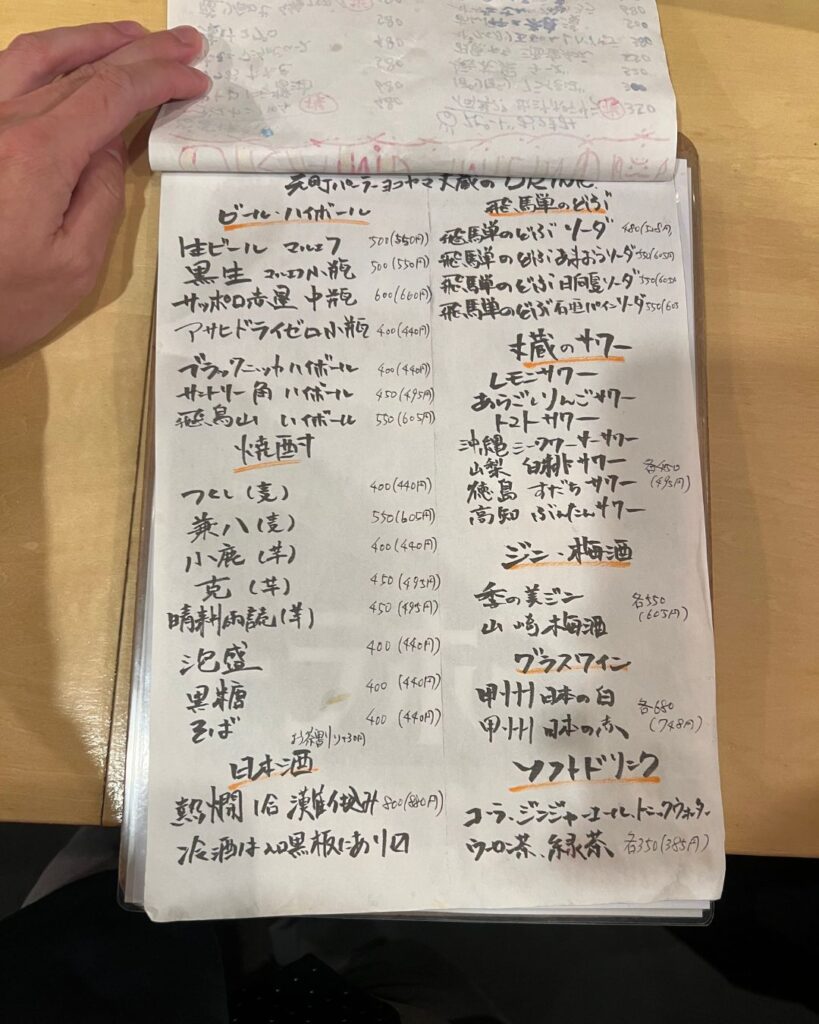 元町パーラーヨコヤマ 大蔵の DRINK
ビール・ハイボール
生ビール マルエフ 500(550円)
黒生 マルエフ小瓶 500(550円)
サッポロ赤星 中瓶 600(660円)
アサヒドライゼロ小瓶 400(440円)
ブラックニッカハイボール 400(440円)
サントリー角 ハイボール 450(495円)
飛鳥山 ハイボール 550(605円)
焼酎
つくし(麦) 400(440円)
兼八(麦) 550(605円)
小鹿(芋) 400(440円)
克(芋) 450(495円)
晴耕雨読(芋) 450(495円)
泡盛 400(440円)
黒糖 400(440円)
そば 400(440円)
お茶割り+30円
日本酒
熱燗 1合 灘仕込み 800(880円)
冷酒は入口黒板にあり〼
飛騨のどぶ
飛騨のどぶ ソーダ 480(528円)
飛騨のどぶ ソーダ 550(605円)
飛騨のどぶ 日向夏ソーダ 550(605円
飛騨のどぶ 石垣パインソーダ 550(605
大蔵のサワー
レモンサワー
あらごしりんごサワー
トマトサワー
沖縄シークワーサーサワー
山梨 白桃サワー 各450
徳島 すだちサワー (495円)
高知 ぶんたんサワー
ジン・梅酒
季の美ジン 各550
山崎梅酒 (605円)
グラスワイン
甲州 日本の白 各680
甲州 日本の赤 (748円)
ソフトドリンク
コーラ、ジンジャーエール、トニックウォーター
ウーロン茶、緑茶 各350(385円)